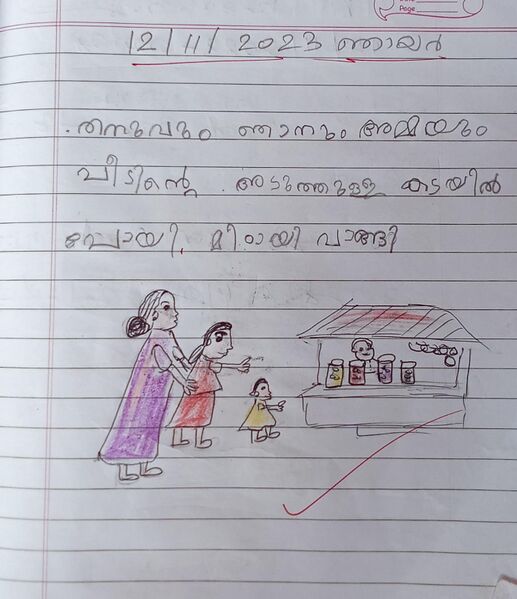 Date
Page
12/11/2023 ഞായർ
. തനുവും ഞാനും അമ്മയും
വീടിന്റെ അടുത്തുള്ള കടയിൽ
പോയി. മിഠായി വാങ്ങി